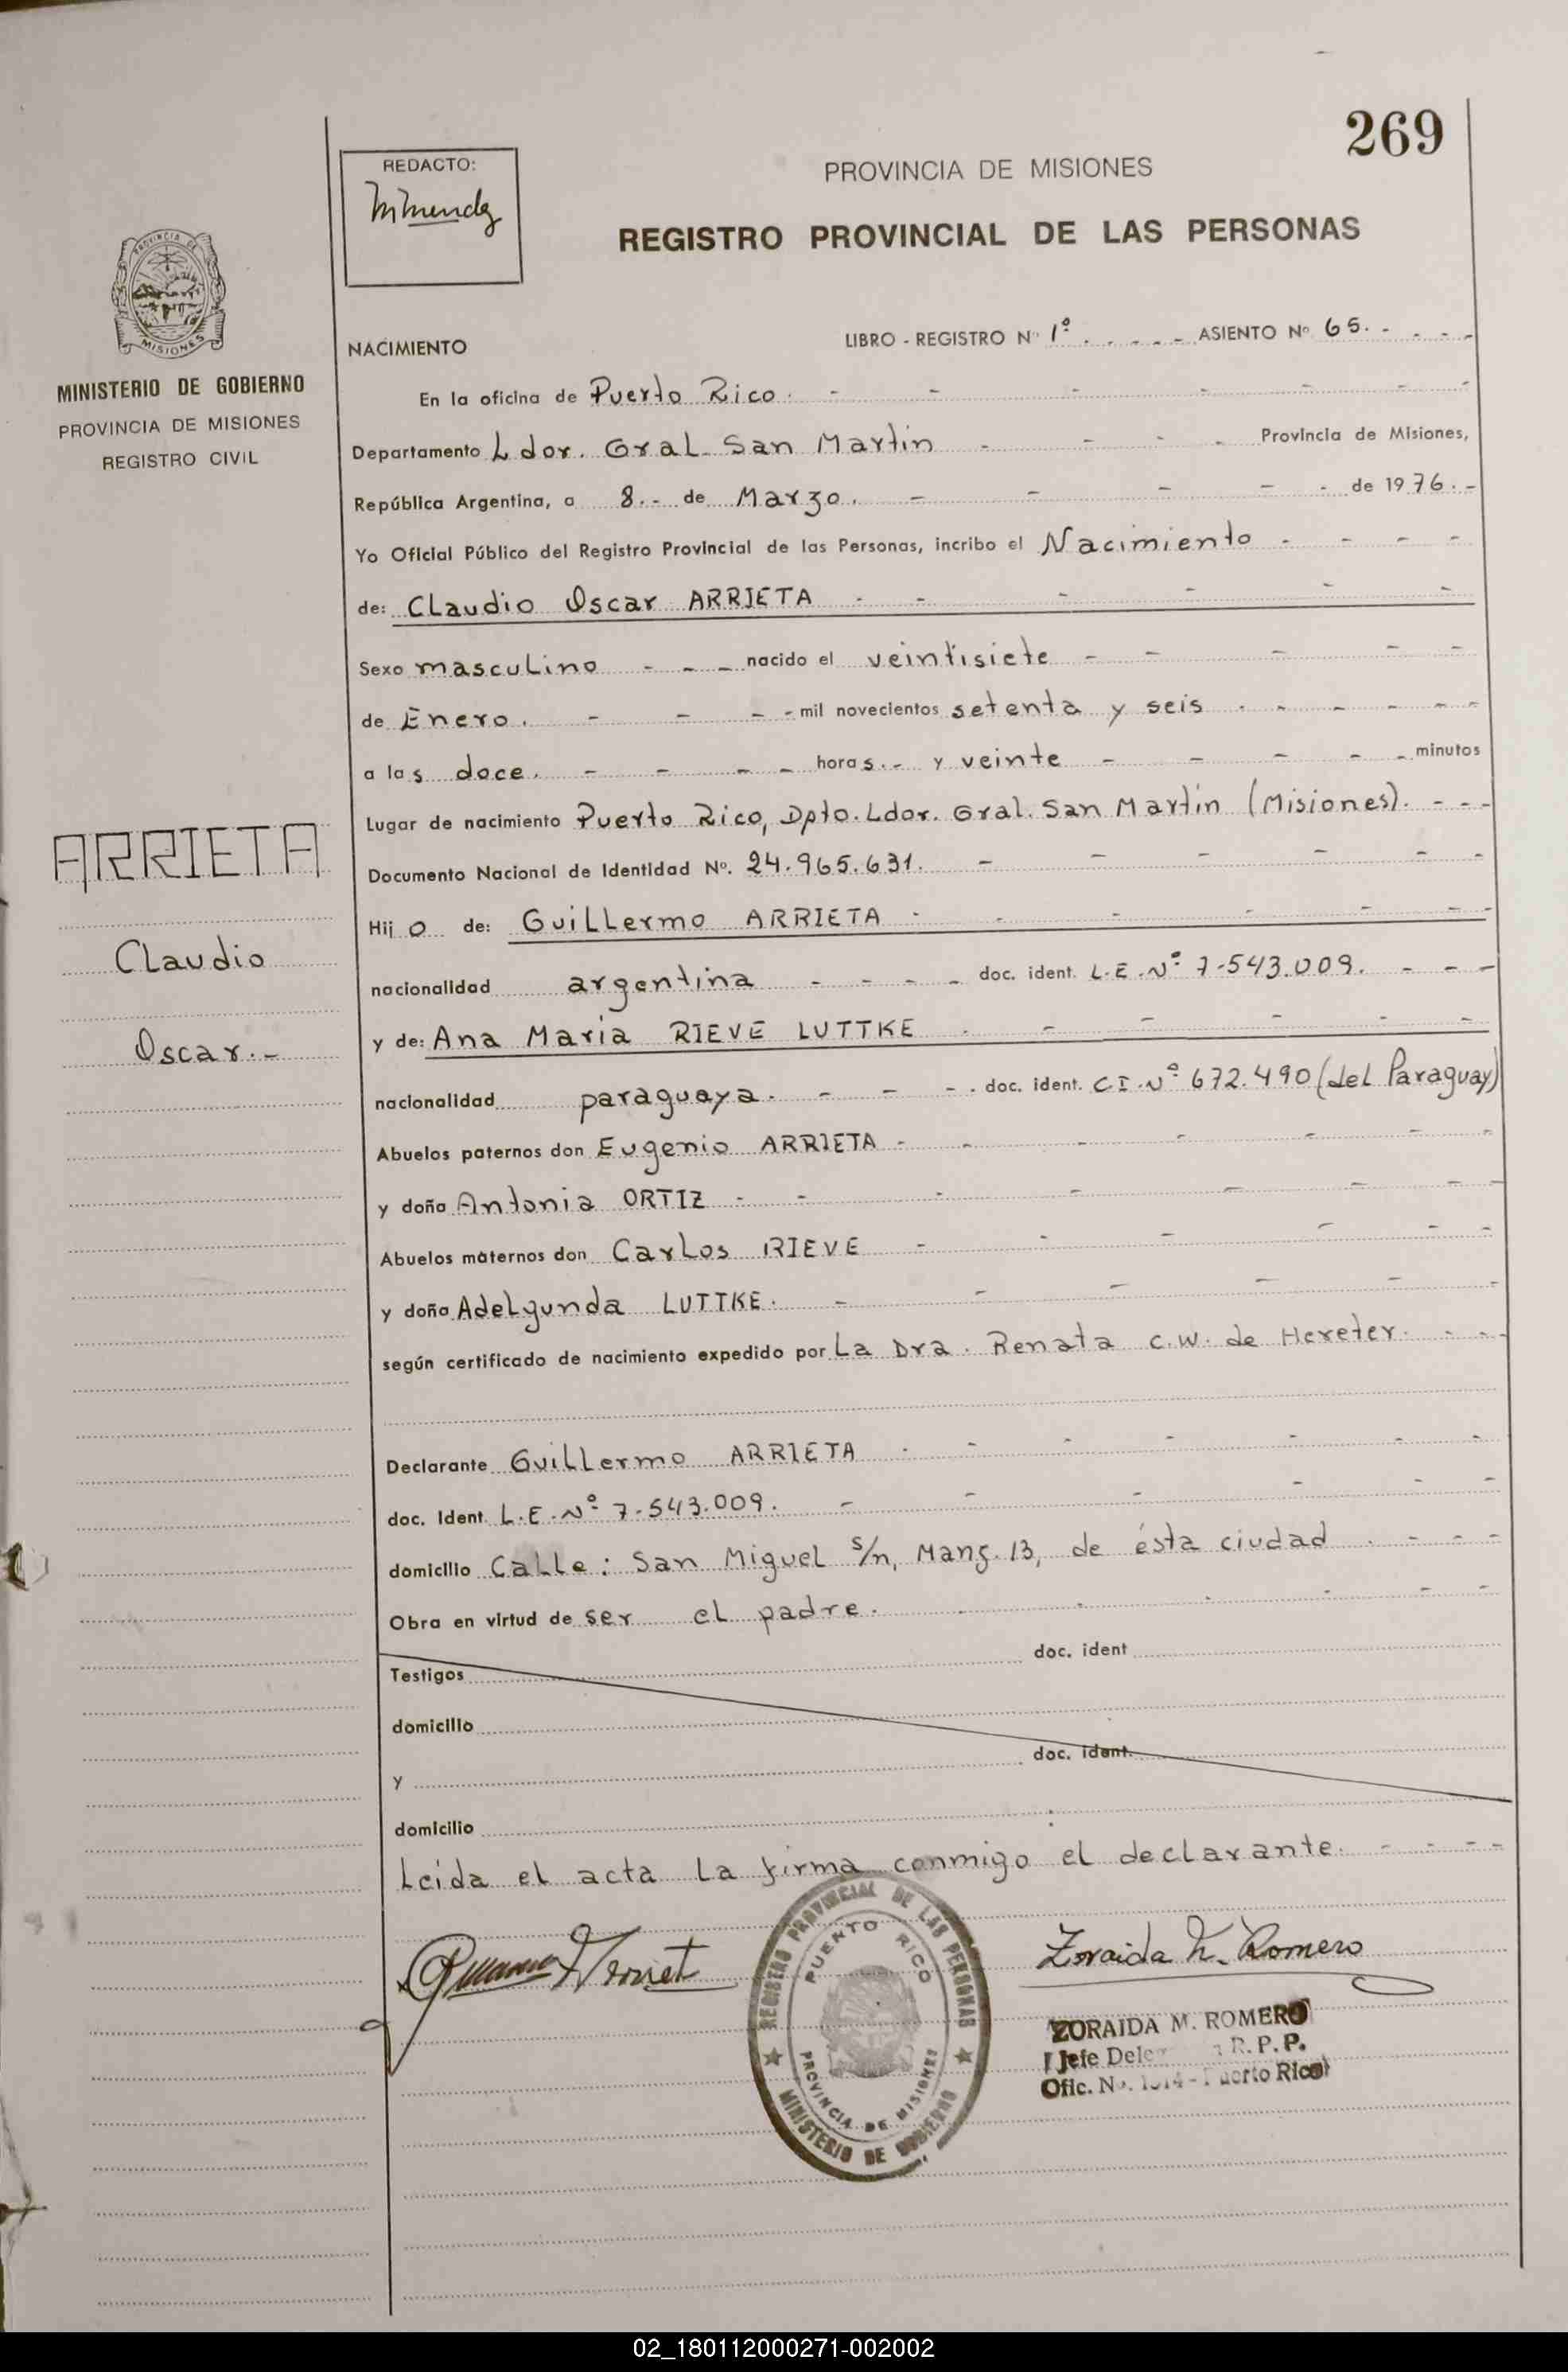 269
REDACTO:
PROVINCIA DE MISIONES
REGISTRO PROVINCIAL DE LAS PERSONAS
MISIONES
MINISTERIO DE GOBIERNO
PROVINCIA DE MISIONES
REGISTRO CIVIL
NACIMIENTO LIBRO - REGISTRO Nº 1º ASIENTO Nº 65.
En la oficina de Puerto Rico.
Departamento Ldor. Gral. San Martin Provincia de Misiones,
República Argentina, a 8.- de Marzo. de 1976.-
Yo Oficial Público del Registro Provincial de las Personas, incribo el Nacimiento
de: Claudio Oscar ARRIETA
Sexo masculino nacido el veintisiete
de Enero. mil novecientos setenta y seis
a las doce. horas.- y veinte minutos
Lugar de nacimiento Puerto Rico, Dpto. Ldor. Gral. San Martin (Misiones).
Documento Nacional de Identidad Nº. 24.965.631.
Hijo de: Guillermo ARRIETA
nacionalidad argentina doc. ident. L.E.Nº 7.543.009.
y de: Ana Maria RIEVE LUTTKE
nacionalidad paraguaya. doc. ident. CI.Nº 672.490 (del Paraguay)
Abuelos paternos don Eugenio ARRIETA
y doña Antonia ORTIZ
Abuelos maternos don Carlos RIEVE
y doña Adelgunda LUTTKE.
según certificado de nacimiento expedido por La Dra. Renata C.W. de Hereter.
Declarante Guillermo ARRIETA
doc. Ident. L.E.Nº 7.543.009.
domicilio Calle: San Miguel s/n, Manz. 13, de ésta ciudad
Obra en virtud de ser el padre.
Testigos doc. ident
domicilio
y doc. ident.
domicilio
Leida el acta la firma conmigo el declarante.
ARRIETA
Claudio
Oscar.-
REGISTRO PROVINCIAL DE LAS PERSONAS
PUERTO RICO
PROVINCIA DE MISIONES
MINISTERIO DE GOBIERNO
Zoraida M. Romero
ZORAIDA M. ROMERO
Jefe R.P.P.
Ofic. No. Puerto Rico
02_180112000271-002002